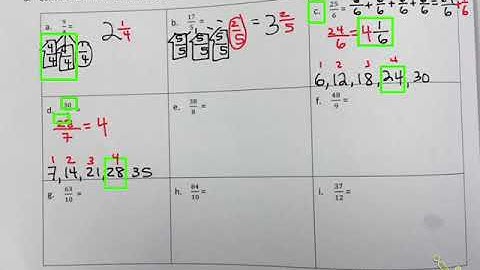 a. 9/4 = 2 1/4
4/4 4/4 1/4
b. 17/5 = 3 2/5
5/5 5/5 5/5 2/5
c. 25/6 = 6/6 + 6/6 + 6/6 + 6/6 + 1/6
24/6 = 4 1/6
1 2 3 4
6, 12, 18, 24, 30
d. 30
28/7 = 4
1 2 3 4
7, 14, 21, 28 35
e. 38/8 =
f. 48/9 =
g. 63/10 =
h. 84/10 =
i. 37/12 =